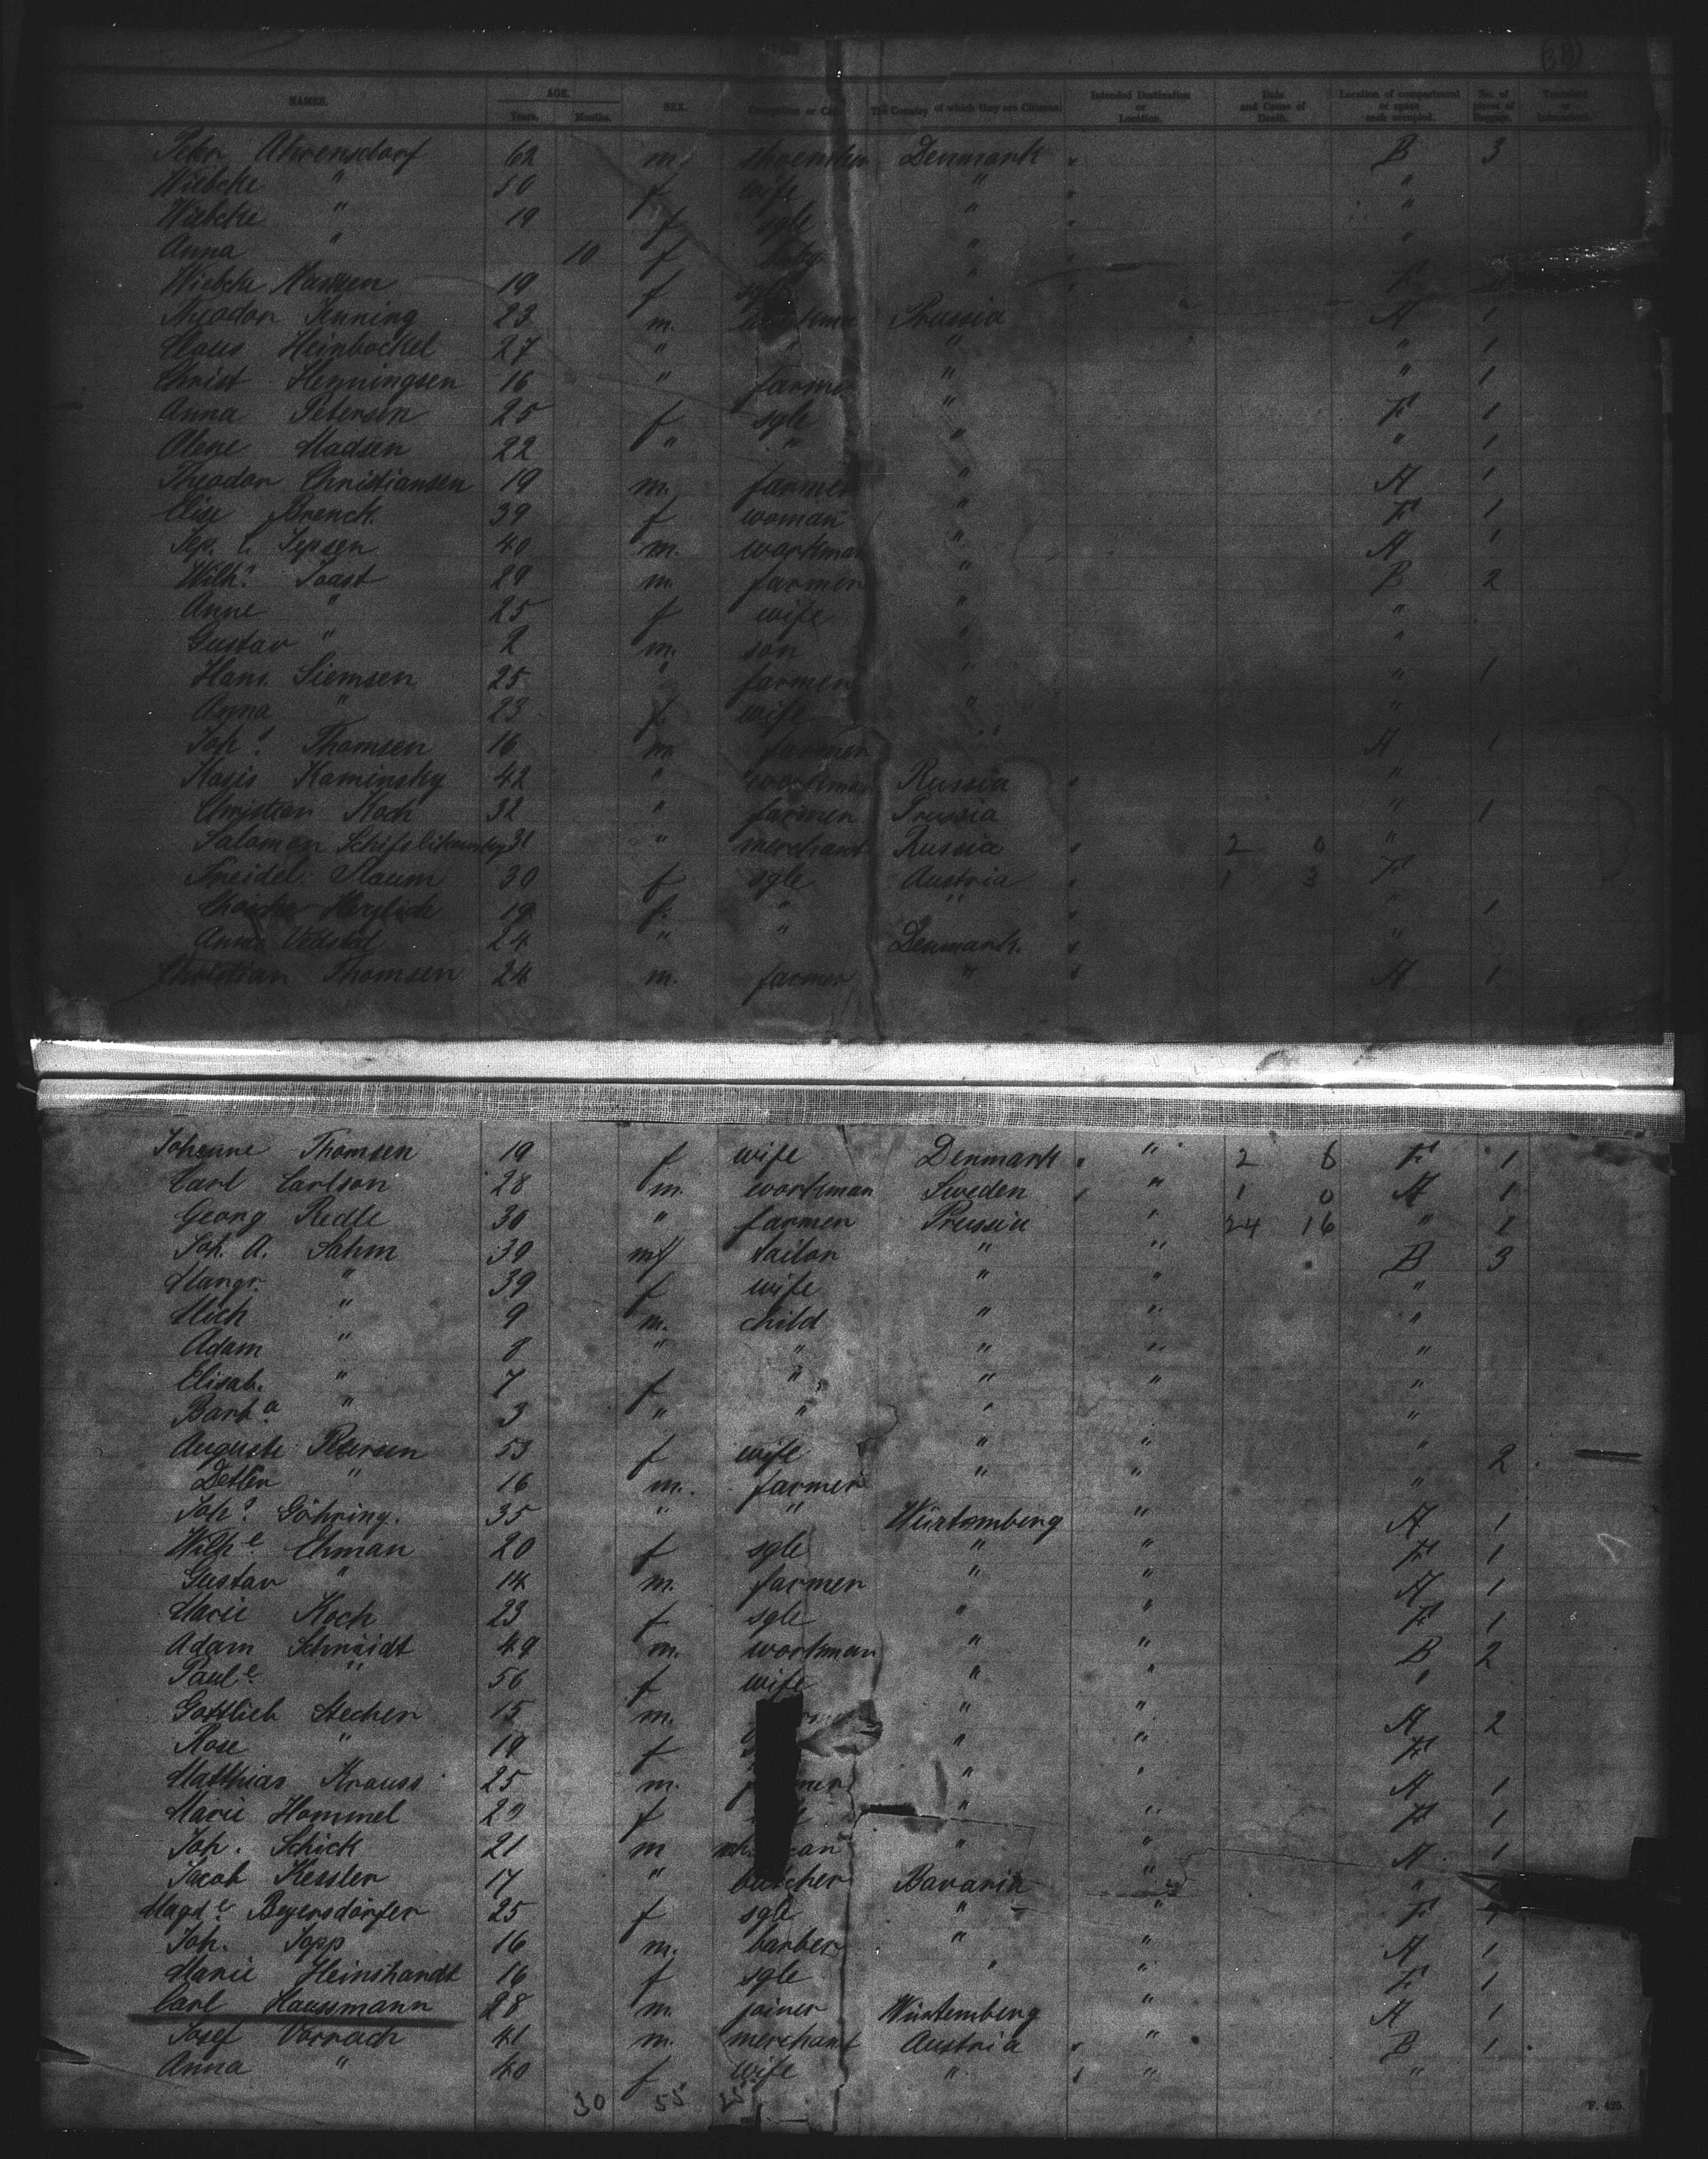 (38)
NAMES. AGE. Years. Months. SEX. Occupation or The Country of which they are Citizens. Intended Destination or Location. Date and Cause of Death. Location of compartment or space each occupied. No. of pieces of Baggage. Transient or
Peter Ahrensdorf 62 m. Denmark B 3
Wiebcke " 50 f wife " "
Wiebcke " 19 f sgle " "
Anna " 10 f " "
Wiebcke Hansen 19 f sgle " F
Theodor Jenning 23 m. Prussia A 1
Claus Heinbockel 27 " " " 1
Christ. Henningsen 16 " farmer " " 1
Anna Petersen 25 f sgle " F 1
Olene Madsen 22 " " " " 1
Theodor Christiansen 19 m. farmer " A 1
Elise Brenck. 39 f woman " F 1
Jep. Jepsen 40 m. workman " A 1
Wilh. Toast 29 m. farmer " B 2
Anne " 25 f wife " "
Gustav " 2 m. son " "
Hans Siemsen 25 " farmer " " 1
Anna " 23 f. wife " "
Joh. Thomsen 16 m. farmer " A 1
Kaminsky 42 " workman Russia "
Christian Koch 32 " farmer Prussia " 1
Salomon 31 " merchant Russia 2 0 "
Freidel 30 f sgle Austria 1 3 F
19 f. " " " 1
Anna Vedsted 24 " " Denmark. "
Christian Thomsen 24 m. farmer " A 1
Johanne Thomsen 19 f wife Denmark " 2 6 F 1
Carl Carlson 28 m. workman Sweden " 1 0 A 1
Georg Redle 30 " farmer Prussia " 24 16 " 1
Joh. A. Sahm 39 m tailor " " B 3
Margr. " 39 f wife " " "
Mich " 9 m. child " " "
Adam " 8 " " " " "
Elisab. " 7 f " " " "
Barb.a " 3 " " " "
Auguste Petersen 53 f wife " " " 2
Detlev " 16 m. farmer " " "
Joh. Göhring. 35 " " Würtemberg " A 1
Wilh.e Ehman 20 f sgle " " F 1
Gustav " 14 m. farmer " " A 1
Marie Koch 23 f sgle " " F 1
Adam Schmidt 49 m. workman " " B 2
Paul.e " 56 f wife " " "
Gottlieb Stecher 15 m. " " A 2
Rose " 19 f " " F
Matthias Krauss 25 m. " " A 1
Marie Hommel 22 f " " F 1
Joh. Schick 21 m " " A 1
Jacob Kessler 17 " butcher Bavaria " "
Magd.e Beyersdörfer 25 f sgle " " F
Joh. Popp 16 m. barber " " A 1
Marie Heinshandt 16 f sgle " " F 1
Carl Haussmann 28 m. joiner Würtemberg " A 1
Josef Vorrach 41 m. merchant Austria " B 1
Anna " 40 f wife " " "
30 55
F. 425.